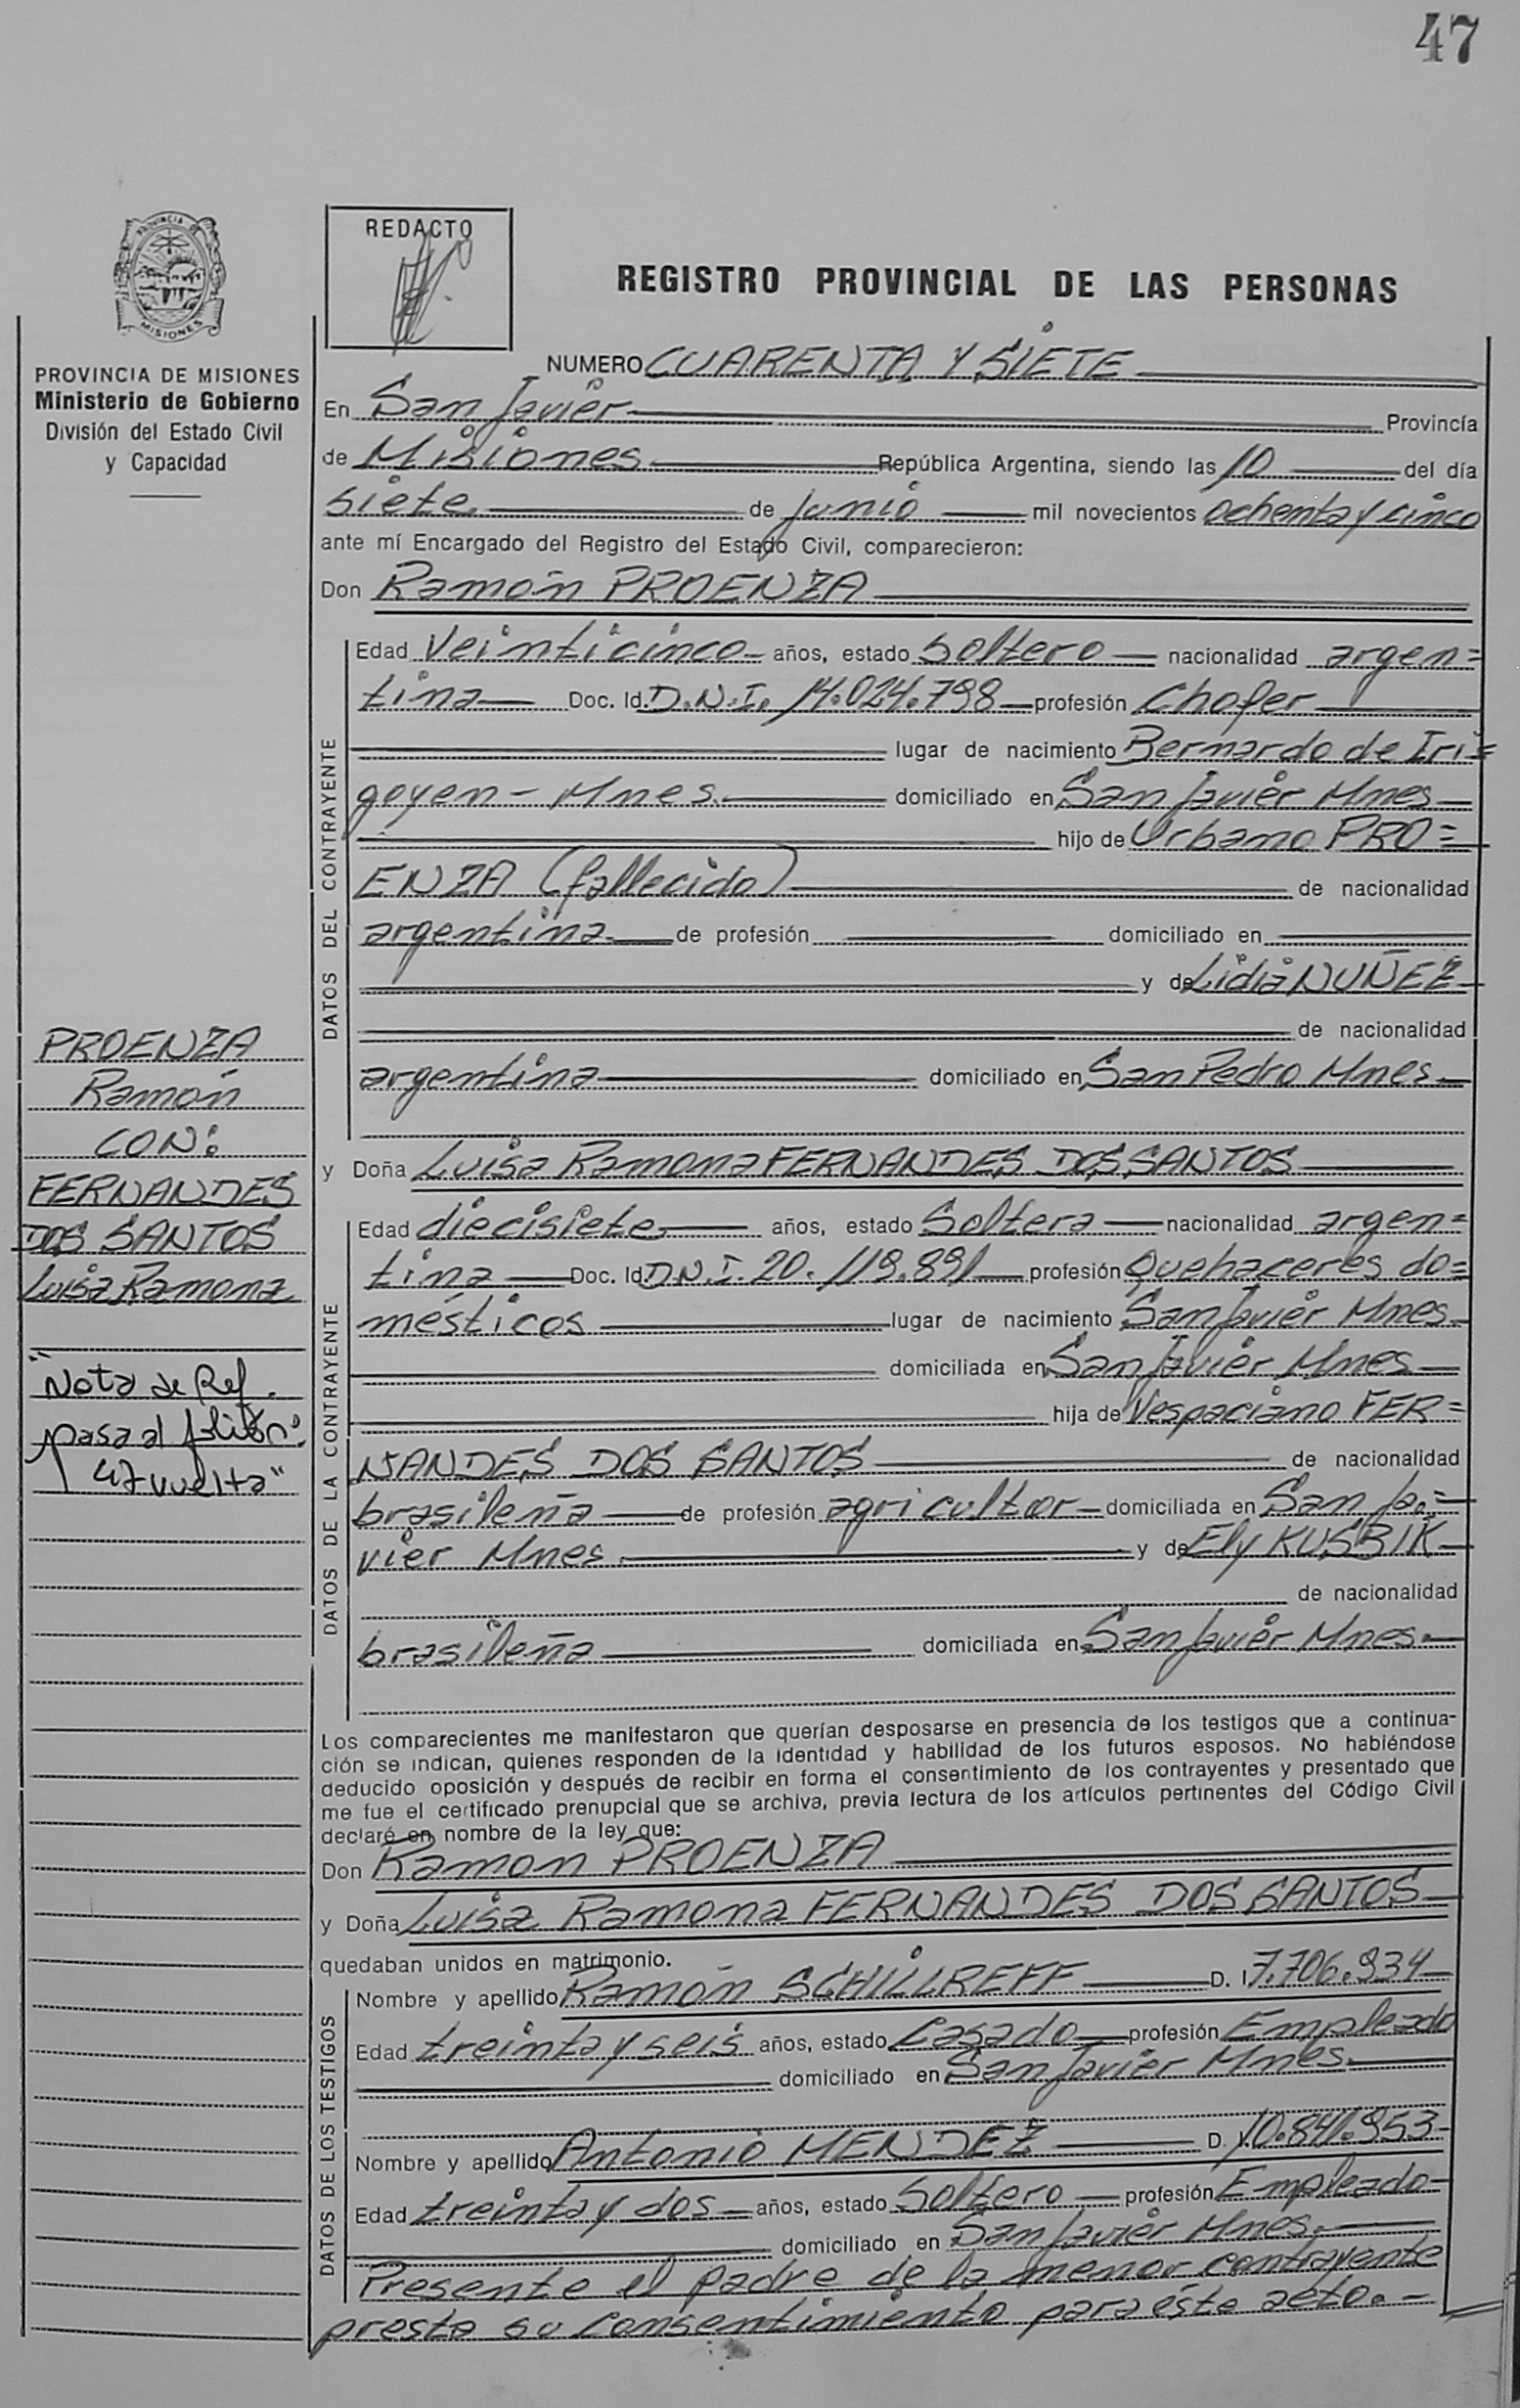 47
PROVINCIA DE
MISIONES
REDACTO
REGISTRO PROVINCIAL DE LAS PERSONAS
PROVINCIA DE MISIONES
Ministerio de Gobierno
División del Estado Civil
y Capacidad
NUMERO CUARENTA Y SIETE
En San Javier Provincia
de Misiones República Argentina, siendo las 10 del día
siete de junio mil novecientos ochenta y cinco
ante mí Encargado del Registro del Estado Civil, comparecieron:
Don Ramón PROENZA
DATOS DEL CONTRAYENTE
Edad Veinticinco años, estado Soltero nacionalidad argen=
tina Doc. Id. D.N.I. 14.024.798 profesión Chofer
lugar de nacimiento Bernardo de Iri=
goyen - Mnes. domiciliado en San Javier Mnes
hijo de Urbano PRO=
ENZA (fallecido) de nacionalidad
argentina de profesión domiciliado en
y de Lidia NUÑEZ
de nacionalidad
argentina domiciliado en San Pedro Mnes
PROENZA
Ramón
CON:
FERNANDES
DOS SANTOS
Luisa Ramona
"Nota de Ref.
pasa al folio nº
47 vuelta"
y Doña Luisa Ramona FERNANDES DOS SANTOS
DATOS DE LA CONTRAYENTE
Edad diecisiete años, estado Soltera nacionalidad argen=
tina Doc. Id. D.N.I. 20.119.891 profesión Quehaceres do=
mésticos lugar de nacimiento San Javier Mnes.
domiciliada en San Javier Mnes
hija de Vespaciano FER=
NANDES DOS SANTOS de nacionalidad
brasileña de profesión agricultor domiciliada en San Ja=
vier Mnes. y de Ely KUSBIK
de nacionalidad
brasileña domiciliada en San Javier Mnes.
Los comparecientes me manifestaron que querían desposarse en presencia de los testigos que a continua-
ción se indican, quienes responden de la identidad y habilidad de los futuros esposos. No habiéndose
deducido oposición y después de recibir en forma el consentimiento de los contrayentes y presentado que
me fue el certificado prenupcial que se archiva, previa lectura de los artículos pertinentes del Código Civil
declaré en nombre de la ley que:
Don Ramon PROENZA
y Doña Luisa Ramona FERNANDES DOS SANTOS
quedaban unidos en matrimonio.
DATOS DE LOS TESTIGOS
Nombre y apellido Ramón SCHILLREFF D. I. 7.706.934
Edad treinta y seis años, estado Casado profesión Empleado
domiciliado en San Javier Mnes.
Nombre y apellido Antonio MENDEZ D. I. 10.841.953
Edad treinta y dos años, estado Soltero profesión Empleado
domiciliado en San Javier Mnes.
Presente el padre de la menor contrayente
presta su consentimiento para éste acto.-